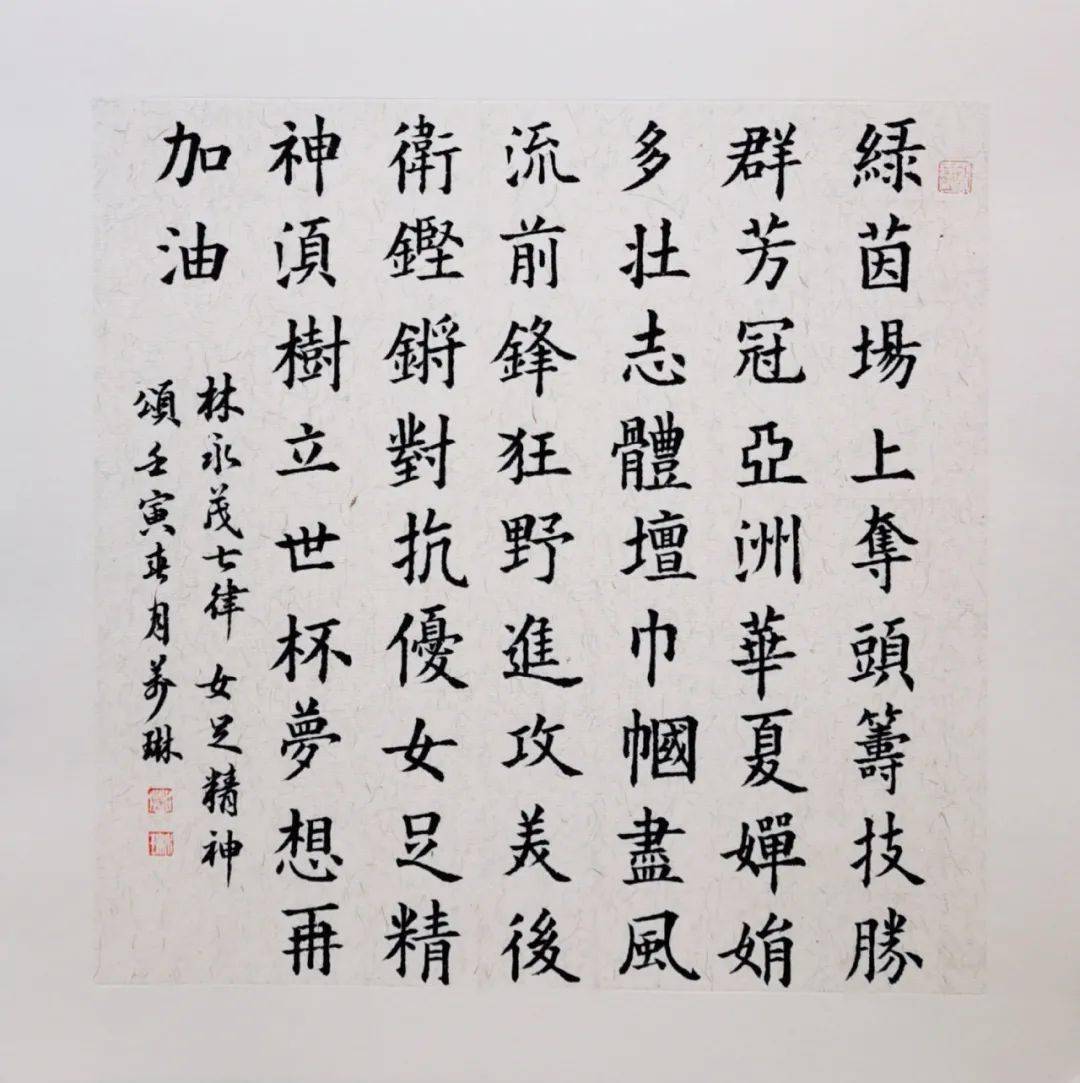 綠茵場上奪頭籌技勝
群芳冠亞洲華夏嬋娟
多壯志體壇巾幗盡風
流前鋒狂野進攻美後
衛鏗鏘對抗優女足精
神須樹立世杯夢想再
加油
林永茂七律 女足精神
頌壬寅春月 琳